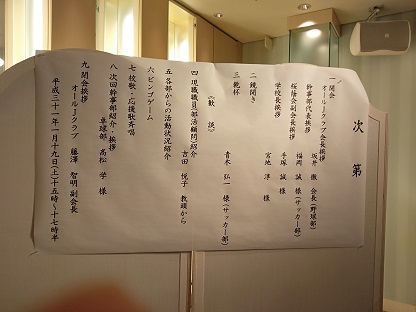 次第
一 開会
オールJクラブ会長挨拶 坂井 徹 会長(野球部)
幹事部代表挨拶 福岡 誠 様(サッカー部)
桜蔭会副会長挨拶 手塚 誠 様
学校長挨拶 宮地 淳 様
二 鏡開き
三 乾杯 青木 弘一 様(サッカー部)
《歓談》
四 現職職員部活顧問紹介 吉田 悦子 教頭から
五 各部からの活動状況紹介
六 ビンゴゲーム
七 校歌・応援歌斉唱
八 次回幹事部紹介・挨拶 卓球部 高松 学 様
九 閉会挨拶 オールJクラブ 藤澤 智明 副会長
平成三十一年一月十九日(土)十五時〜十七時半